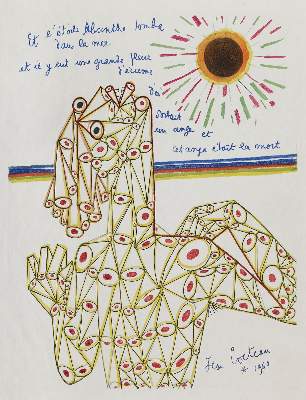 Et l'étoile Absinthe tomba
dans la mer
et il y eut une grande fleur
d'écume
D'où
sortait
un ange et
cet ange était la mort
Jean Cocteau
* 1960